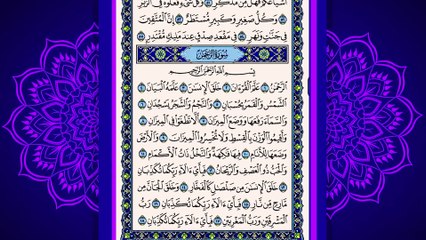 أَشْيَاعَكُمْ فَهَلْ مِن مُّدَّكِرٍ ۝ وَكُلُّ شَىْءٍ فَعَلُوهُ فِى ٱلزُّبُرِ
۝ وَكُلُّ صَغِيرٍ وَكَبِيرٍ مُّسْتَطَرٌ ۝ إِنَّ ٱلْمُتَّقِينَ
فِى جَنَّٰتٍ وَنَهَرٍ ۝ فِى مَقْعَدِ صِدْقٍ عِندَ مَلِيكٍ مُّقْتَدِرٍۭ ۝
سُورَةُ الرَّحْمَٰن
بِسْمِ ٱللَّهِ ٱلرَّحْمَٰنِ ٱلرَّحِيمِ
ٱلرَّحْمَٰنُ ۝ عَلَّمَ ٱلْقُرْءَانَ ۝ خَلَقَ ٱلْإِنسَٰنَ ۝ عَلَّمَهُ ٱلْبَيَانَ
۝ ٱلشَّمْسُ وَٱلْقَمَرُ بِحُسْبَانٍ ۝ وَٱلنَّجْمُ وَٱلشَّجَرُ يَسْجُدَانِ
۝ وَٱلسَّمَآءَ رَفَعَهَا وَوَضَعَ ٱلْمِيزَانَ ۝ أَلَّا تَطْغَوْا۟ فِى ٱلْمِيزَانِ
۝ وَأَقِيمُوا۟ ٱلْوَزْنَ بِٱلْقِسْطِ وَلَا تُخْسِرُوا۟ ٱلْمِيزَانَ ۝ وَٱلْأَرْضَ
وَضَعَهَا لِلْأَنَامِ ۝ فِيهَا فَٰكِهَةٌ وَٱلنَّخْلُ ذَاتُ ٱلْأَكْمَامِ ۝
وَٱلْحَبُّ ذُو ٱلْعَصْفِ وَٱلرَّيْحَانُ ۝ فَبِأَىِّ ءَالَآءِ رَبِّكُمَا تُكَذِّبَانِ
۝ خَلَقَ ٱلْإِنسَٰنَ مِن صَلْصَٰلٍ كَٱلْفَخَّارِ ۝ وَخَلَقَ ٱلْجَآنَّ مِن
مَّارِجٍ مِّن نَّارٍ ۝ فَبِأَىِّ ءَالَآءِ رَبِّكُمَا تُكَذِّبَانِ ۝ رَبُّ
ٱلْمَشْرِقَيْنِ وَرَبُّ ٱلْمَغْرِبَيْنِ ۝ فَبِأَىِّ ءَالَآءِ رَبِّكُمَا تُكَذِّبَانِ